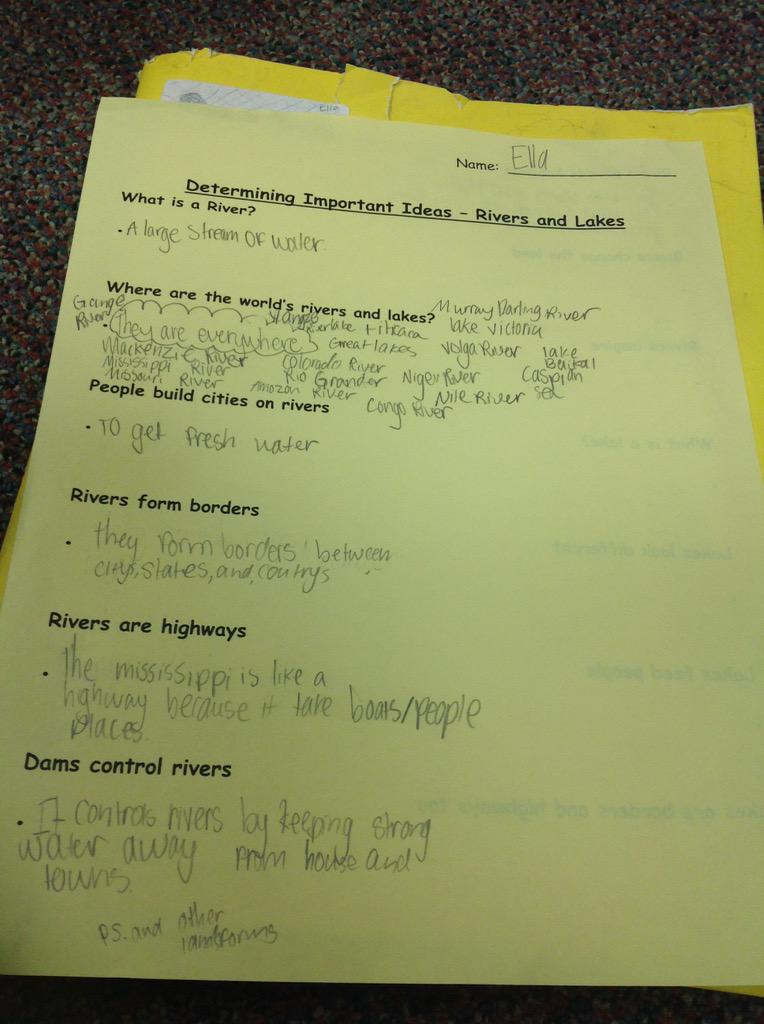 Ella
Name: Ella
Determining Important Ideas - Rivers and Lakes
What is a River?
· A large stream of water.
Where are the world's rivers and lakes?
Gange River
· They are everywhere
Murray Darling River
lake titicaca
lake victoria
Great lakes
Volga River
lake Baikal
Mackenzie River
Colorado River
Mississippi River
Rio Grander
Niger River
Caspian sea
Missouri River
Amozon River
Nile River
Congo River
People build cities on rivers
· To get fresh water
Rivers form borders
· they form borders between
citys, states, and, countrys
Rivers are highways
· The mississippi is like a
highway because it take boats/people
places.
Dams control rivers
· It controls rivers by keeping strong
water away from house and
towns.
P.S. and other
landforms